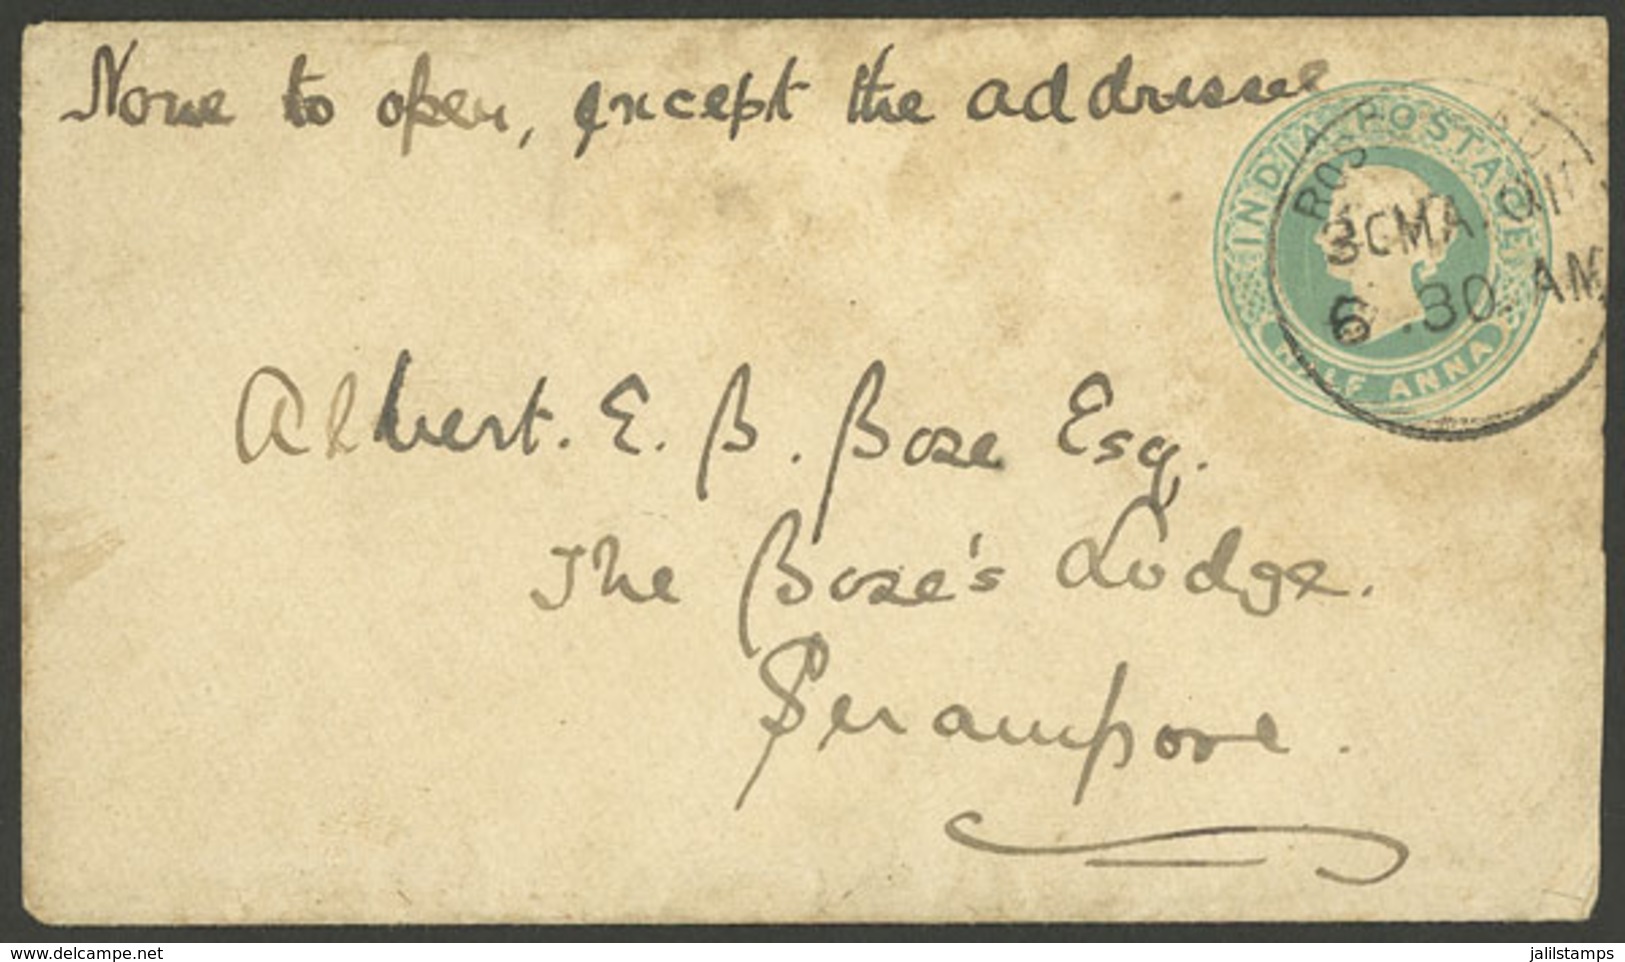 None to open, except the addressee
INDIA POSTAGE
HALF ANNA
ROS
6 .30 AM
Albert. E. B. Bose Esq.
The Bose's Lodge.
Serampore.
delcampe.net
jalilstamps